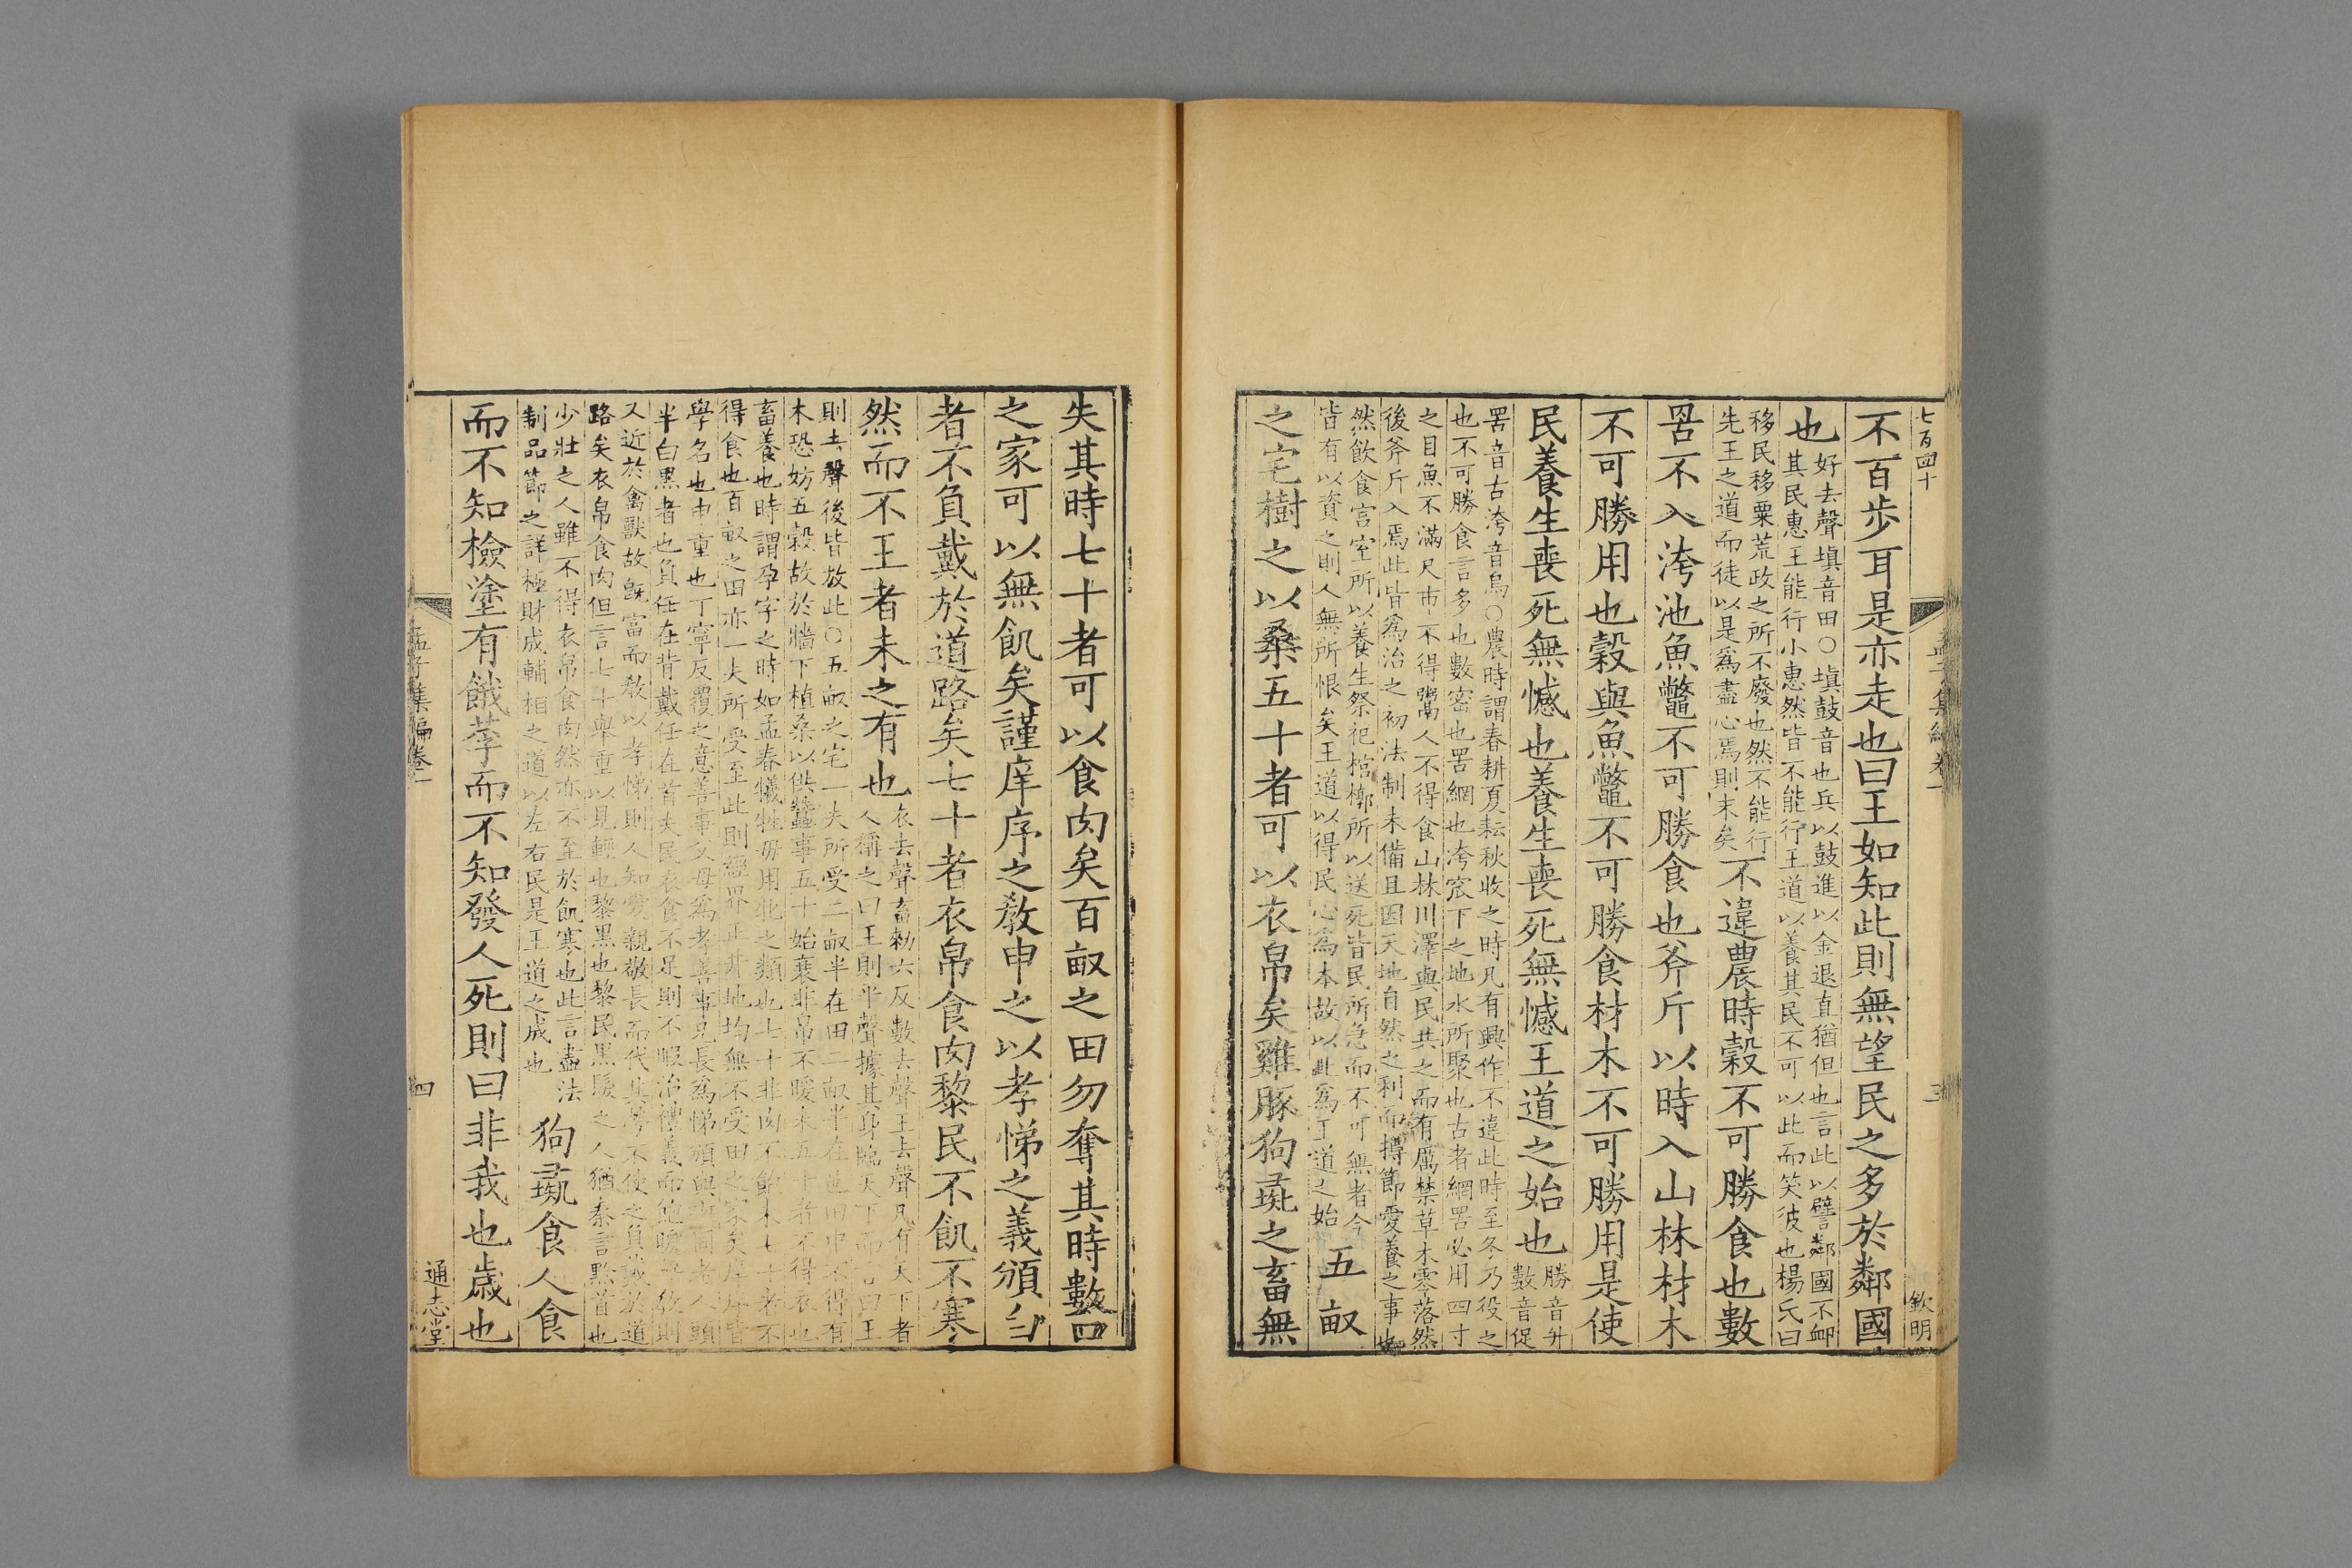 七百四十
欽明
三
不百步耳是亦走也曰王如知此則無望民之多於鄰國
也好去聲填音田○填鼓音也兵以鼓進以金退直猶但也言此以譬鄰國不卹
其民惠王能行小惠然皆不能行王道以養其民不可以此而笑彼也楊氏曰
移民移粟荒政之所不廢也然不能行
先王之道而徒以是爲盡心焉則末矣
不違農時穀不可勝食也數
罟不入洿池魚鼈不可勝食也斧斤以時入山林材木
不可勝用也穀與魚鼈不可勝食材木不可勝用是使
民養生喪死無憾也養生喪死無憾王道之始也勝音升
數音促
罟音古洿音烏○農時謂春耕夏耘秋收之時凡有興作不違此時至冬乃役之
也不可勝食言多也數密也罟網也洿窊下之地水所聚也古者網罟必用四寸
之目魚不滿尺市不得鬻人不得食山林川澤與民共之而有厲禁草木零落然
後斧斤入焉此皆爲治之初法制未備且因天地自然之利而撙節愛養之事也
然飲食宫室所以養生祭祀棺槨所以送死皆民所急而不可無者今
皆有以資之則人無所恨矣王道以得民心爲本故以此爲王道之始
五畝
之宅樹之以桑五十者可以衣帛矣雞豚狗彘之畜無
失其時七十者可以食肉矣百畝之田勿奪其時數口
之家可以無飢矣謹庠序之教申之以孝悌之義頒白
者不負戴於道路矣七十者衣帛食肉黎民不飢不寒
然而不王者未之有也衣去聲畜勑六反數去聲王去聲凡有天下者
人稱之曰王則平聲據其身臨天下而言曰王
則去聲後皆放此○五畝之宅一夫所受二畝半在田二畝半在邑田中不得有
木恐妨五穀故於墻下植桑以供蠶事五十始衰非帛不暖未五十者不得衣也
畜養也時謂孕字之時如孟春犧牲毋用牝之類也七十非肉不飽未七十者不
得食也百畝之田亦一夫所受至此則經界正井地均無不受田之家矣庠序皆
學名也申重也丁寧反覆之意善事父母爲孝善事兄長爲悌頒與斑同老人頭
半白黑者也負任在背戴任在首夫民衣食不足則不暇治禮義而飽暖無教則
又近於禽獸故旣富而教以孝悌則人知愛親敬長而代其勞不使之負戴於道
路矣衣帛食肉但言七十舉重以見輕也黎黑也黎民黑髮之人猶秦言黔首也
少壯之人雖不得衣帛食肉然亦不至於飢寒也此言盡法
制品節之詳極財成輔相之道以左右民是王道之成也
狗彘食人食
而不知檢塗有餓莩而不知發人死則曰非我也歲也
孟子集編卷一
四
通志堂